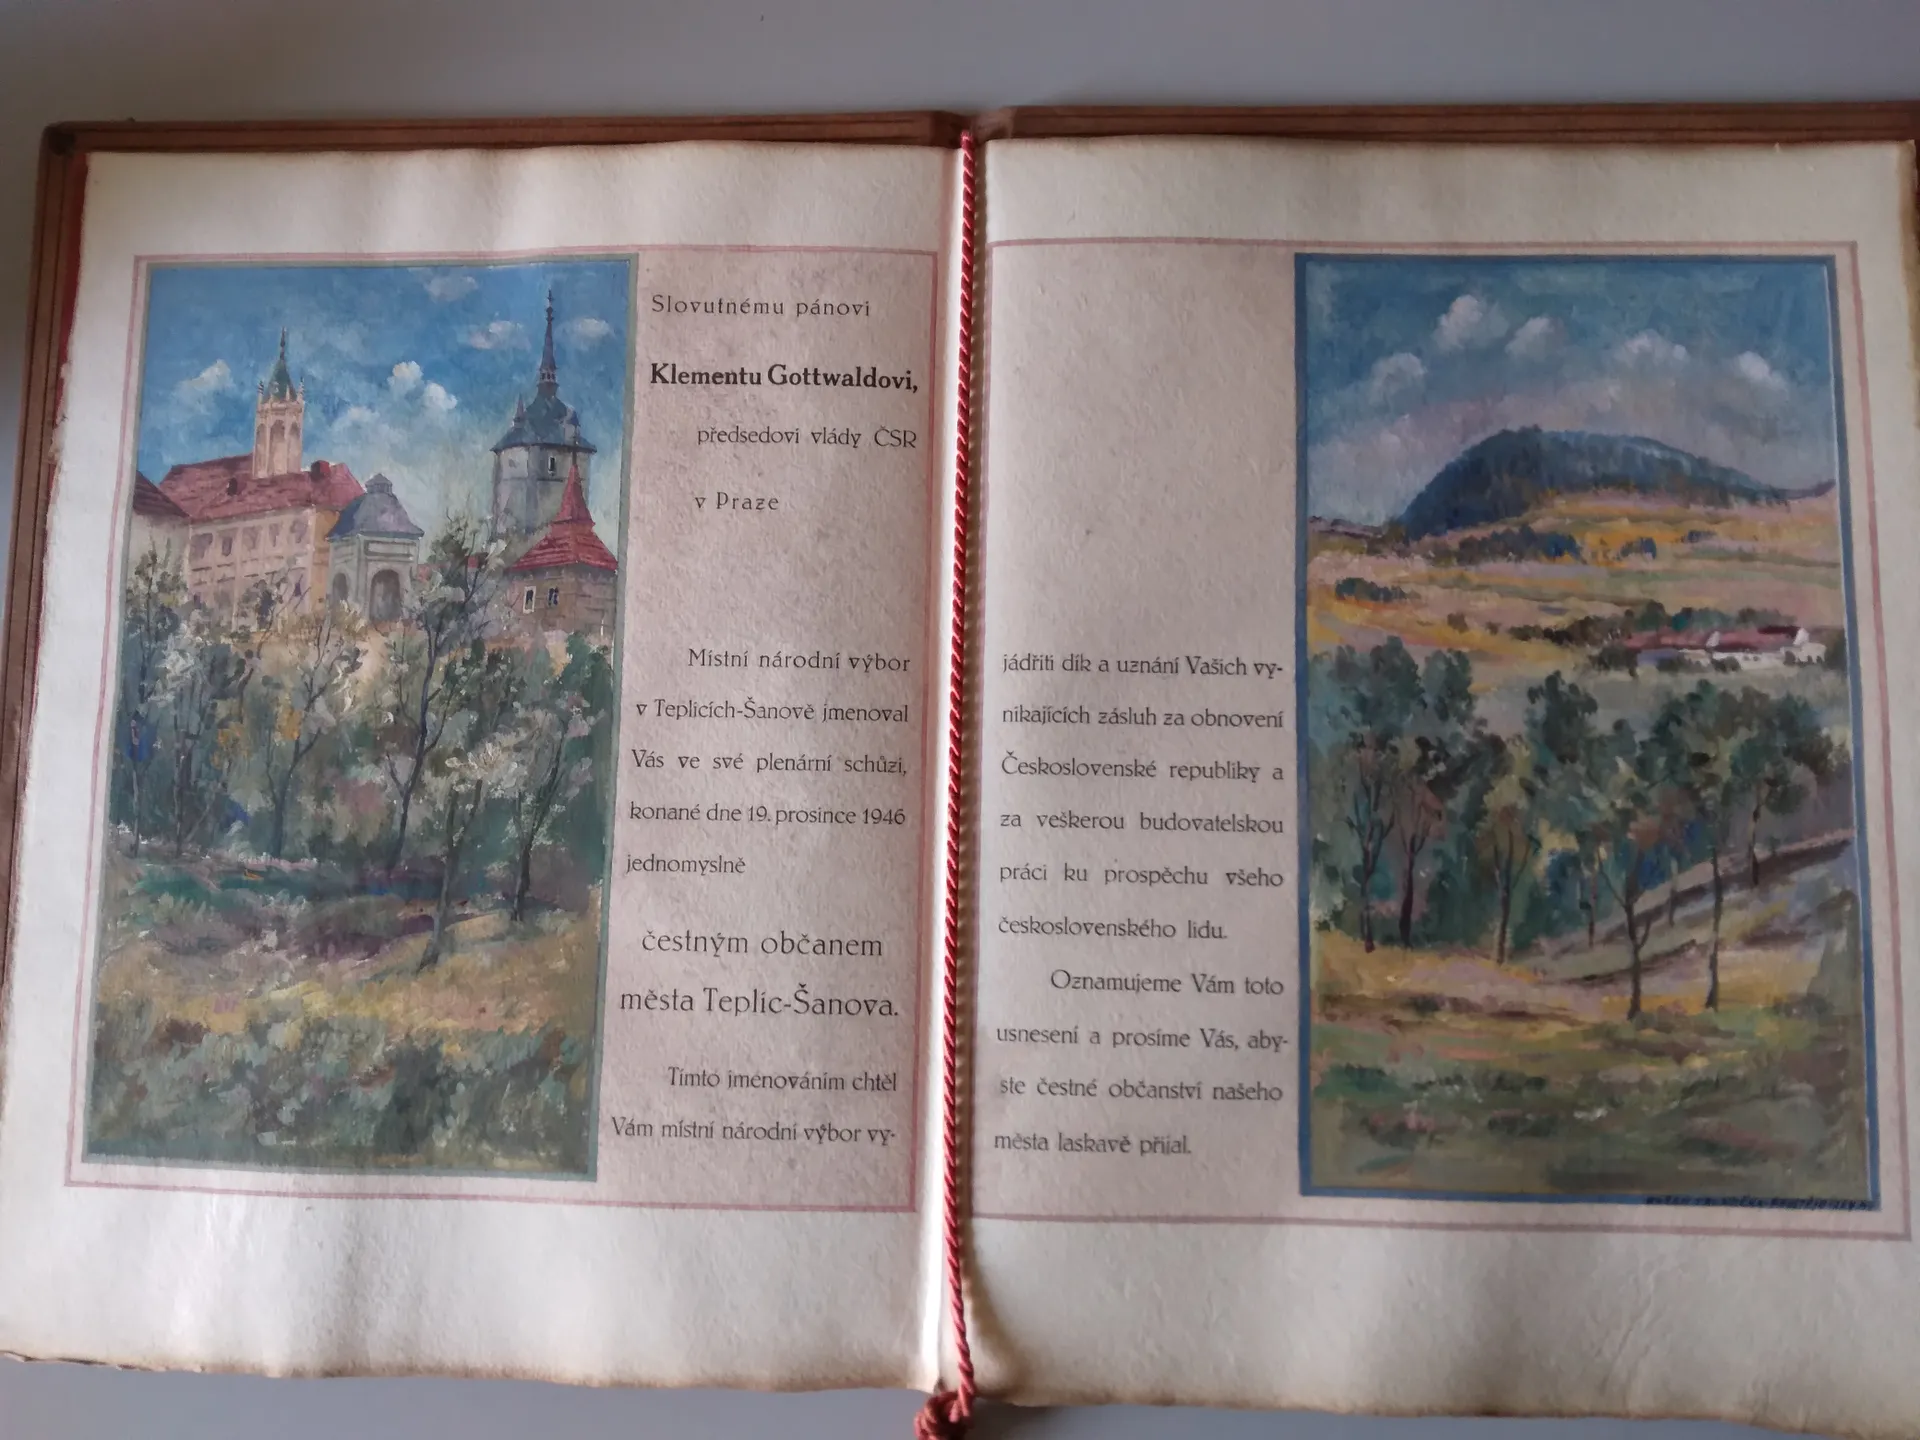 Slovutnému pánovi
Klementu Gottwaldovi,
předsedovi vlády ČSR
v Praze
Místní národní výbor
v Teplicích-Šanově jmenoval
Vás ve své plenární schůzi,
konané dne 19. prosince 1946
jednomyslně
čestným občanem
města Teplic-Šanova.
Tímto jmenováním chtěl
Vám místní národní výbor vy-
jádřiti dík a uznání Vašich vy-
nikajících zásluh za obnovení
Československé republiky a
za veškerou budovatelskou
práci ku prospěchu všeho
československého lidu.
Oznamujeme Vám toto
usnesení a prosíme Vás, aby-
ste čestné občanství našeho
města laskavě přijal.